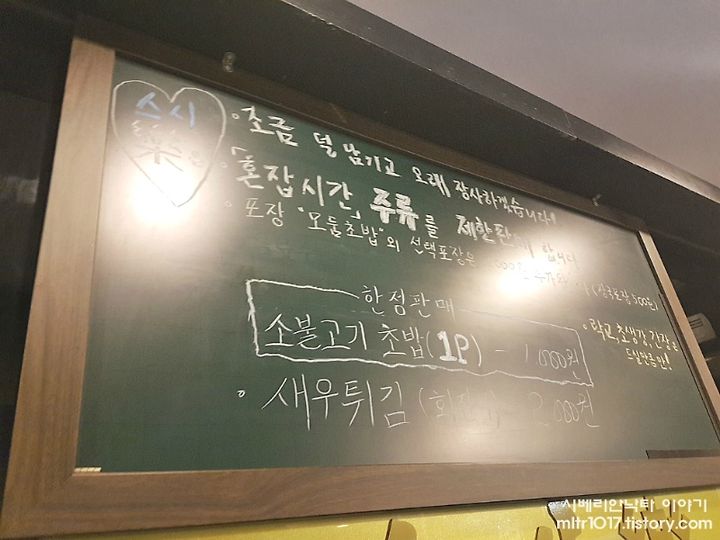 스시
樂
• 조금 덜 남기고 오래 장사하겠습니다!
• "혼잡시간" 주류를 제한판매 합니다
• 포장 "모둠초밥"외 선택포장은 (장국포장 500원)
한정판매
소불고기 초밥(1P) - 1,000원
• 새우튀김 2,000원
• 락교, 초생강, 간장은
드실만큼만!
시베리안낙타 이야기
mltr1017.tistory.com